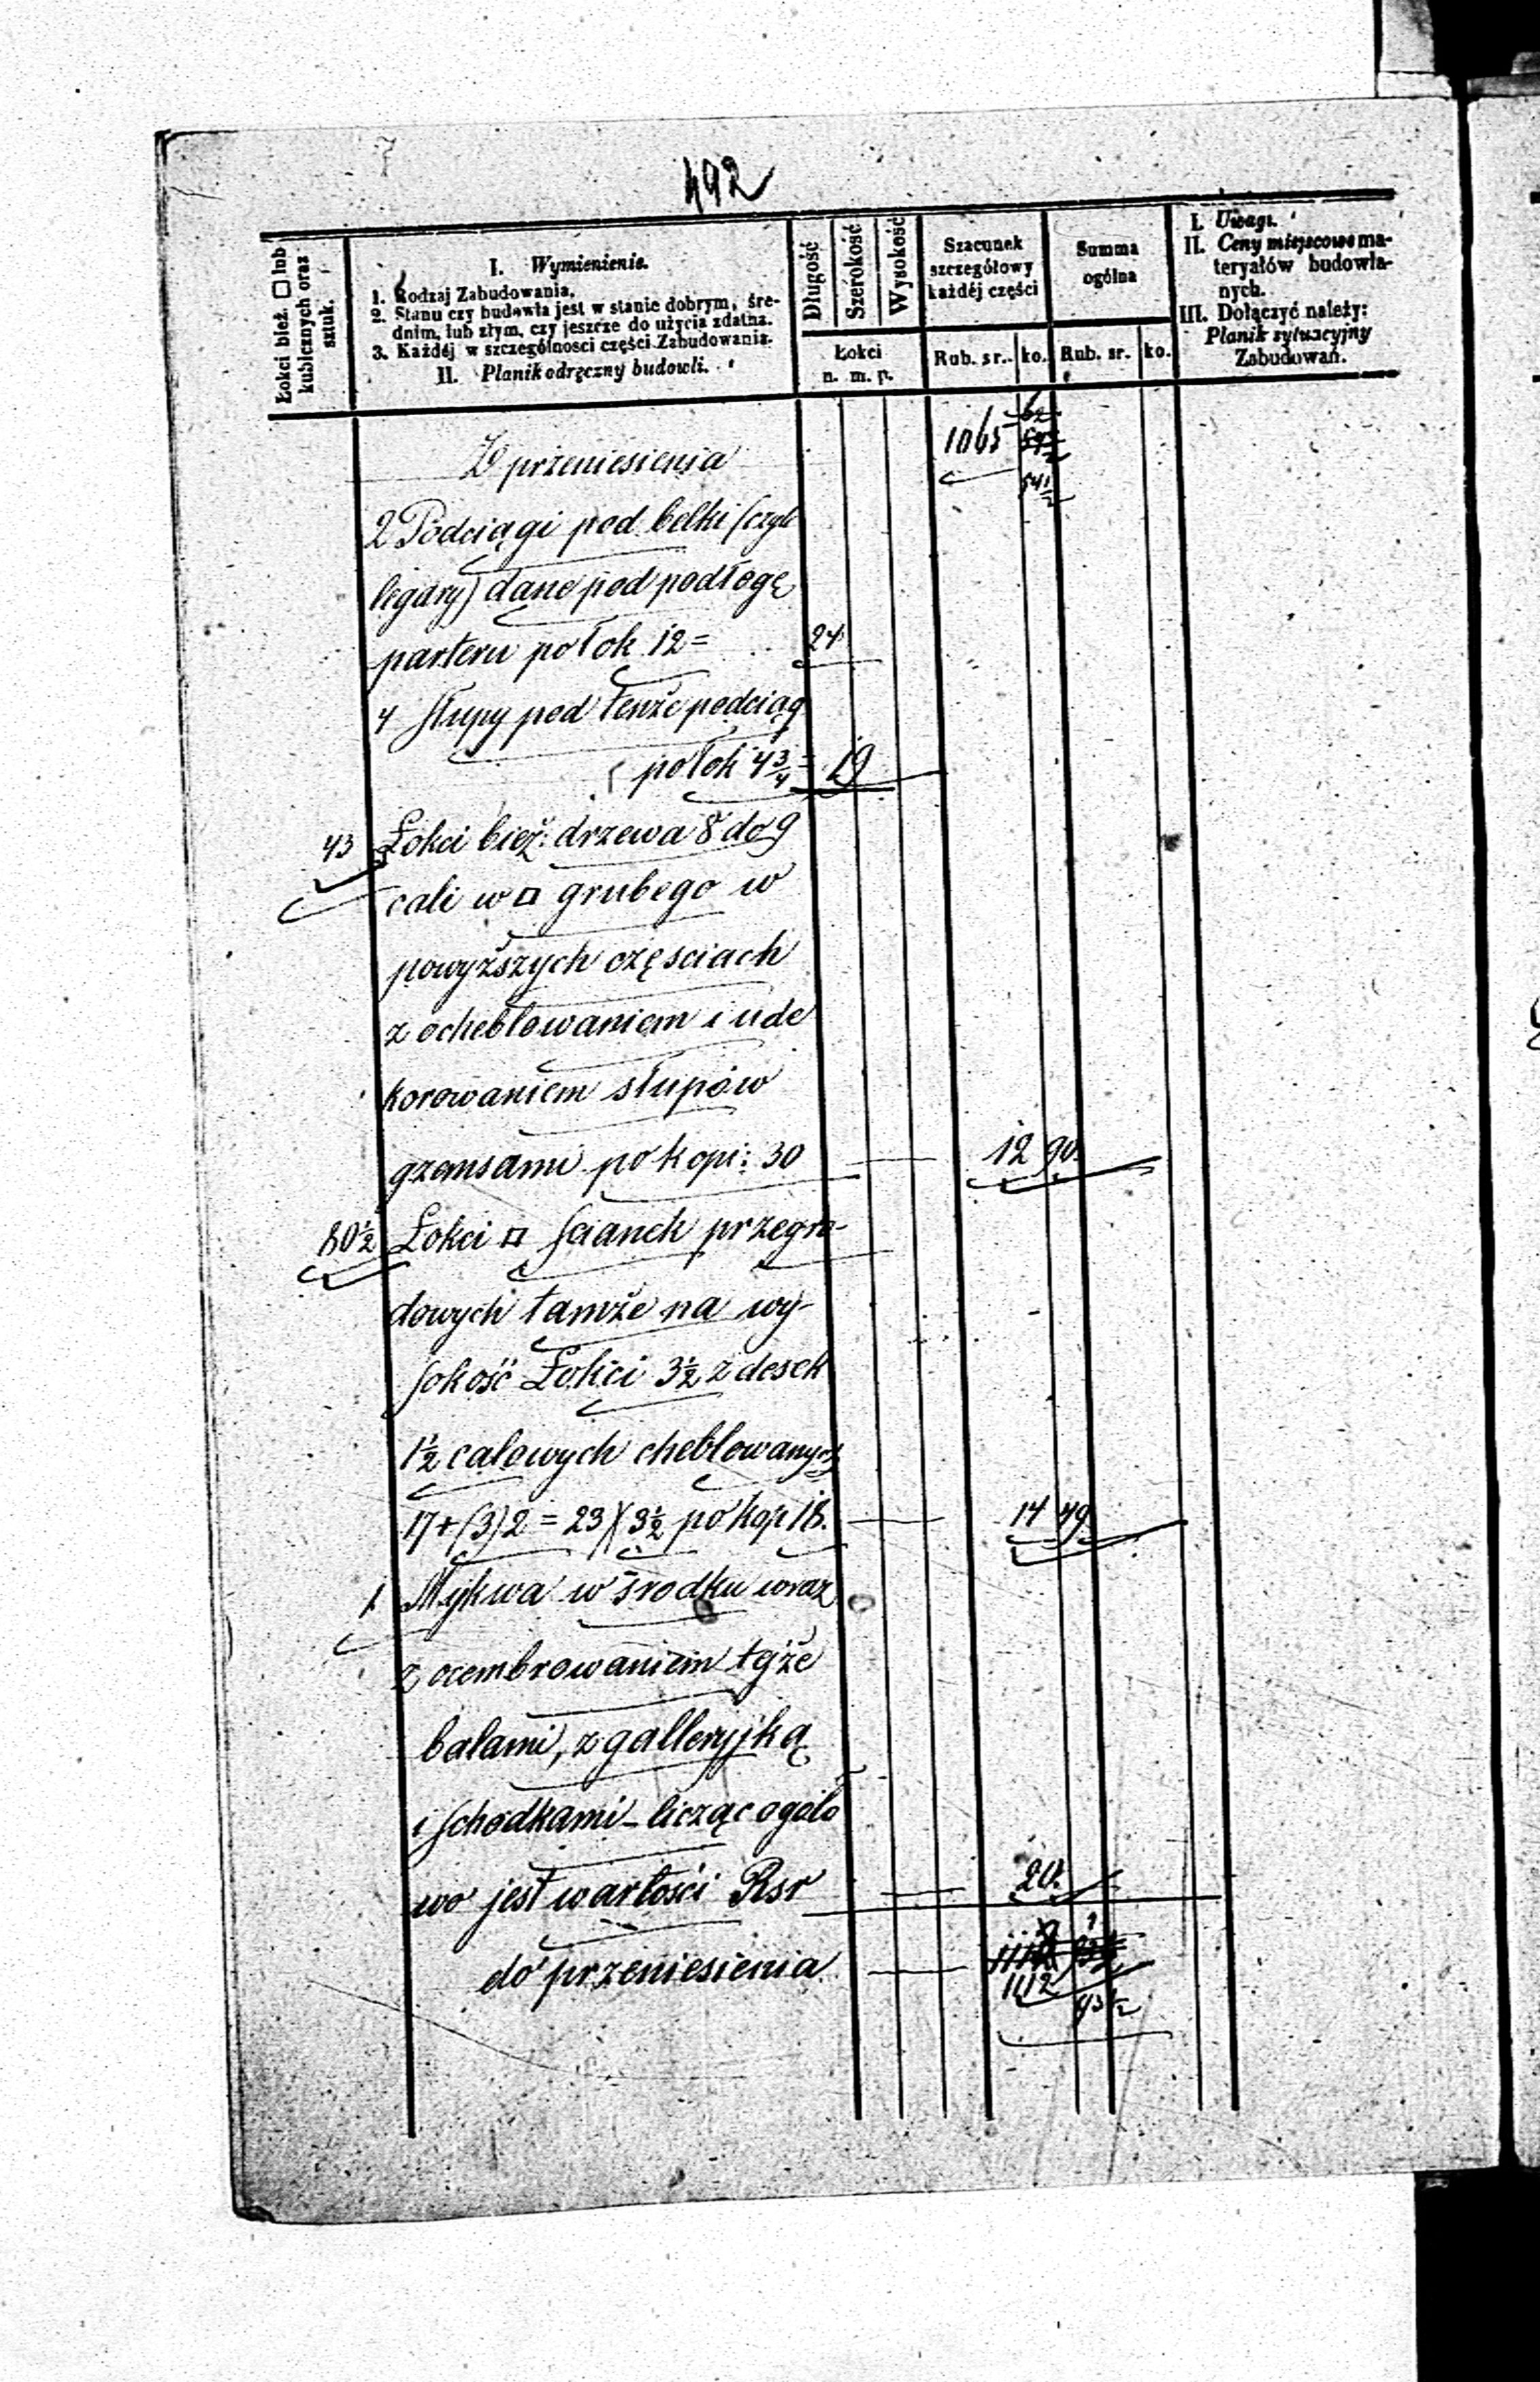 492
Łokci bież. □ lub
kubicznych oraz
sztuk.
I. Wymienienie.
1. Rodzaj Zabudowania.
2. Stanu czy budowla jest w stanie dobrym, śre-
dnim, lub złym, czy jeszcze do użycia zdatna.
3. Każdéj w szczególnosci części Zabudowania.
II. Planik odręczny budowli.
Długość
Szerokość
Wysokość
Łokci
n. m. p.
Szacunek
szczegółowy
każdéj części
Rub. sr. ko.
Summa
ogólna
Rub. sr. ko.
I. Uwagi.
II. Ceny miejscowe ma-
teryałów budowla-
nych.
III. Dołączyć należy:
Planik sytuacyjny
Zabudowań.
Z przeniesienia 1065 54½
2 Podciągi pod belki (czyli
legary) dane pod podłogę
parteru po łok 12 = 24
4 słupy pod tenże podciąg
po łok 4¾ = 19
43 Łokci bież: drzewa 8 do 9
cali w □ grubego w
powyższych częsciach
z ocheblowaniem i ude
korowaniem słupów
gzemsami po kopi: 30 12 90
80½ Łokci □ scianek przegro-
dowych tamże na wy-
sokość Łokci 3½ z desek
1½ calowych cheblowanych
17+(3)2 = 23)(3½ po kop 18. 14 49
1 Mykwa w środku wraz
z ocembrowaniem tejże
balami, z galleryjką
i schodkami – licząc ogólo
wo jest wartości Rsr 20.
do przeniesienia 1112 93½